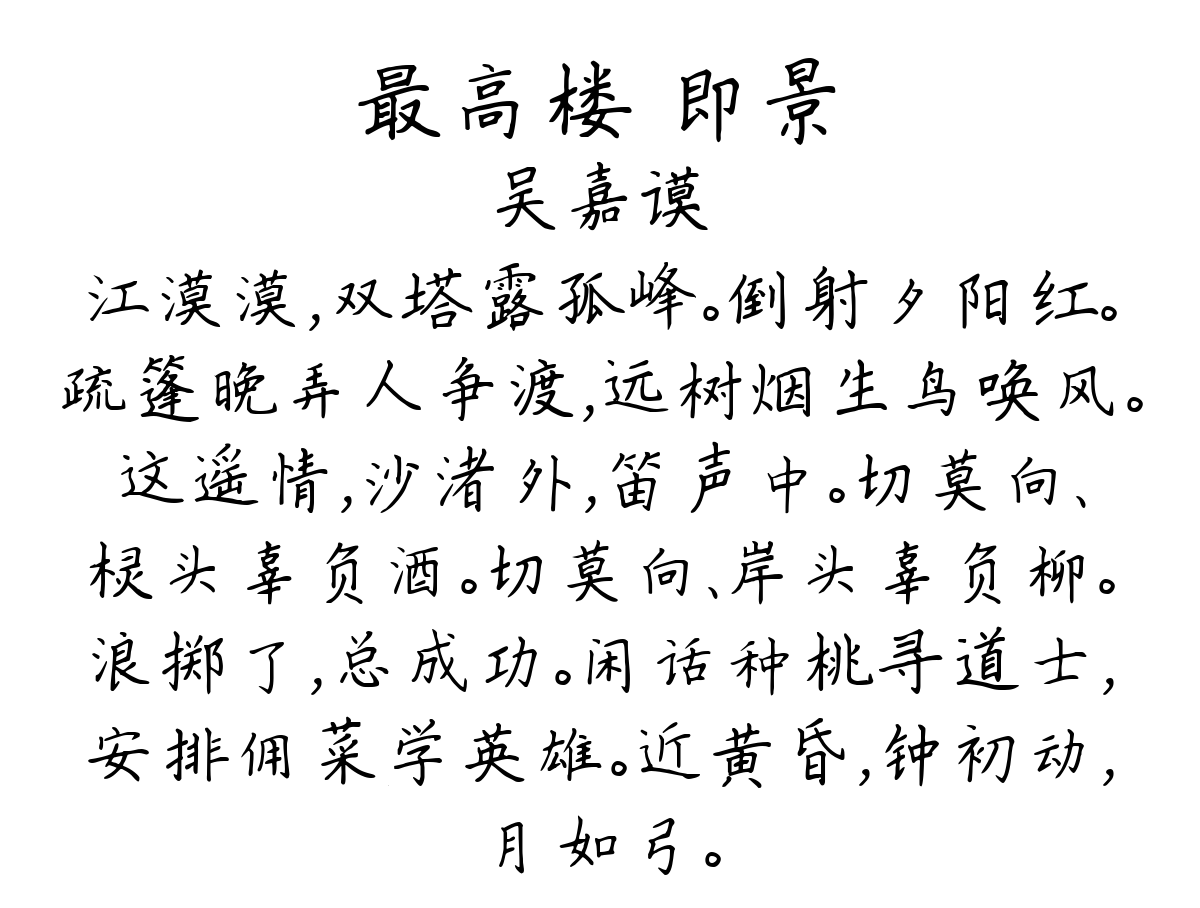 最高楼 即景
吴嘉谟
江漠漠,双塔露孤峰。倒射夕阳红。
疏篷晚弄人争渡,远树烟生鸟唤风。
这遥情,沙渚外,笛声中。切莫向、
棂头辜负酒。切莫向、岸头辜负柳。
浪掷了,总成功。闲话种桃寻道士,
安排佣菜学英雄。近黄昏,钟初动,
月如弓。